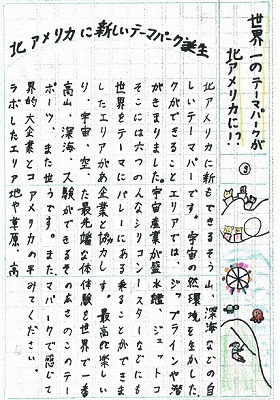 世界一のテーマパークが
北アメリカに!?
③
北アメリカに新しいテーマパーク誕生
北アメリカに新
しいテーマパー
クができること
がきまりました。
そこには六つの
世界をテーマに
したエリアがあ
り、宇宙、空、
高山、深海、ス
ポーツ、また世
界的大企業とコ
ラボしたエリア
もできるそう
です。宇宙の
エリアでは、
宇宙産業が盛
んなシリコン
バレーにある
企業と協力し
た最先端な体
験ができるそ
うです。また
アメリカの平
地や草原、高
山、深海などの自
然環境を生かした
ジップラインや潜
水艦、ジェットコ
ースターなどにも
乗ることができま
す。最高に楽しい
体験も世界で一番
の広さのこのテー
マパークで感じて
みてください。